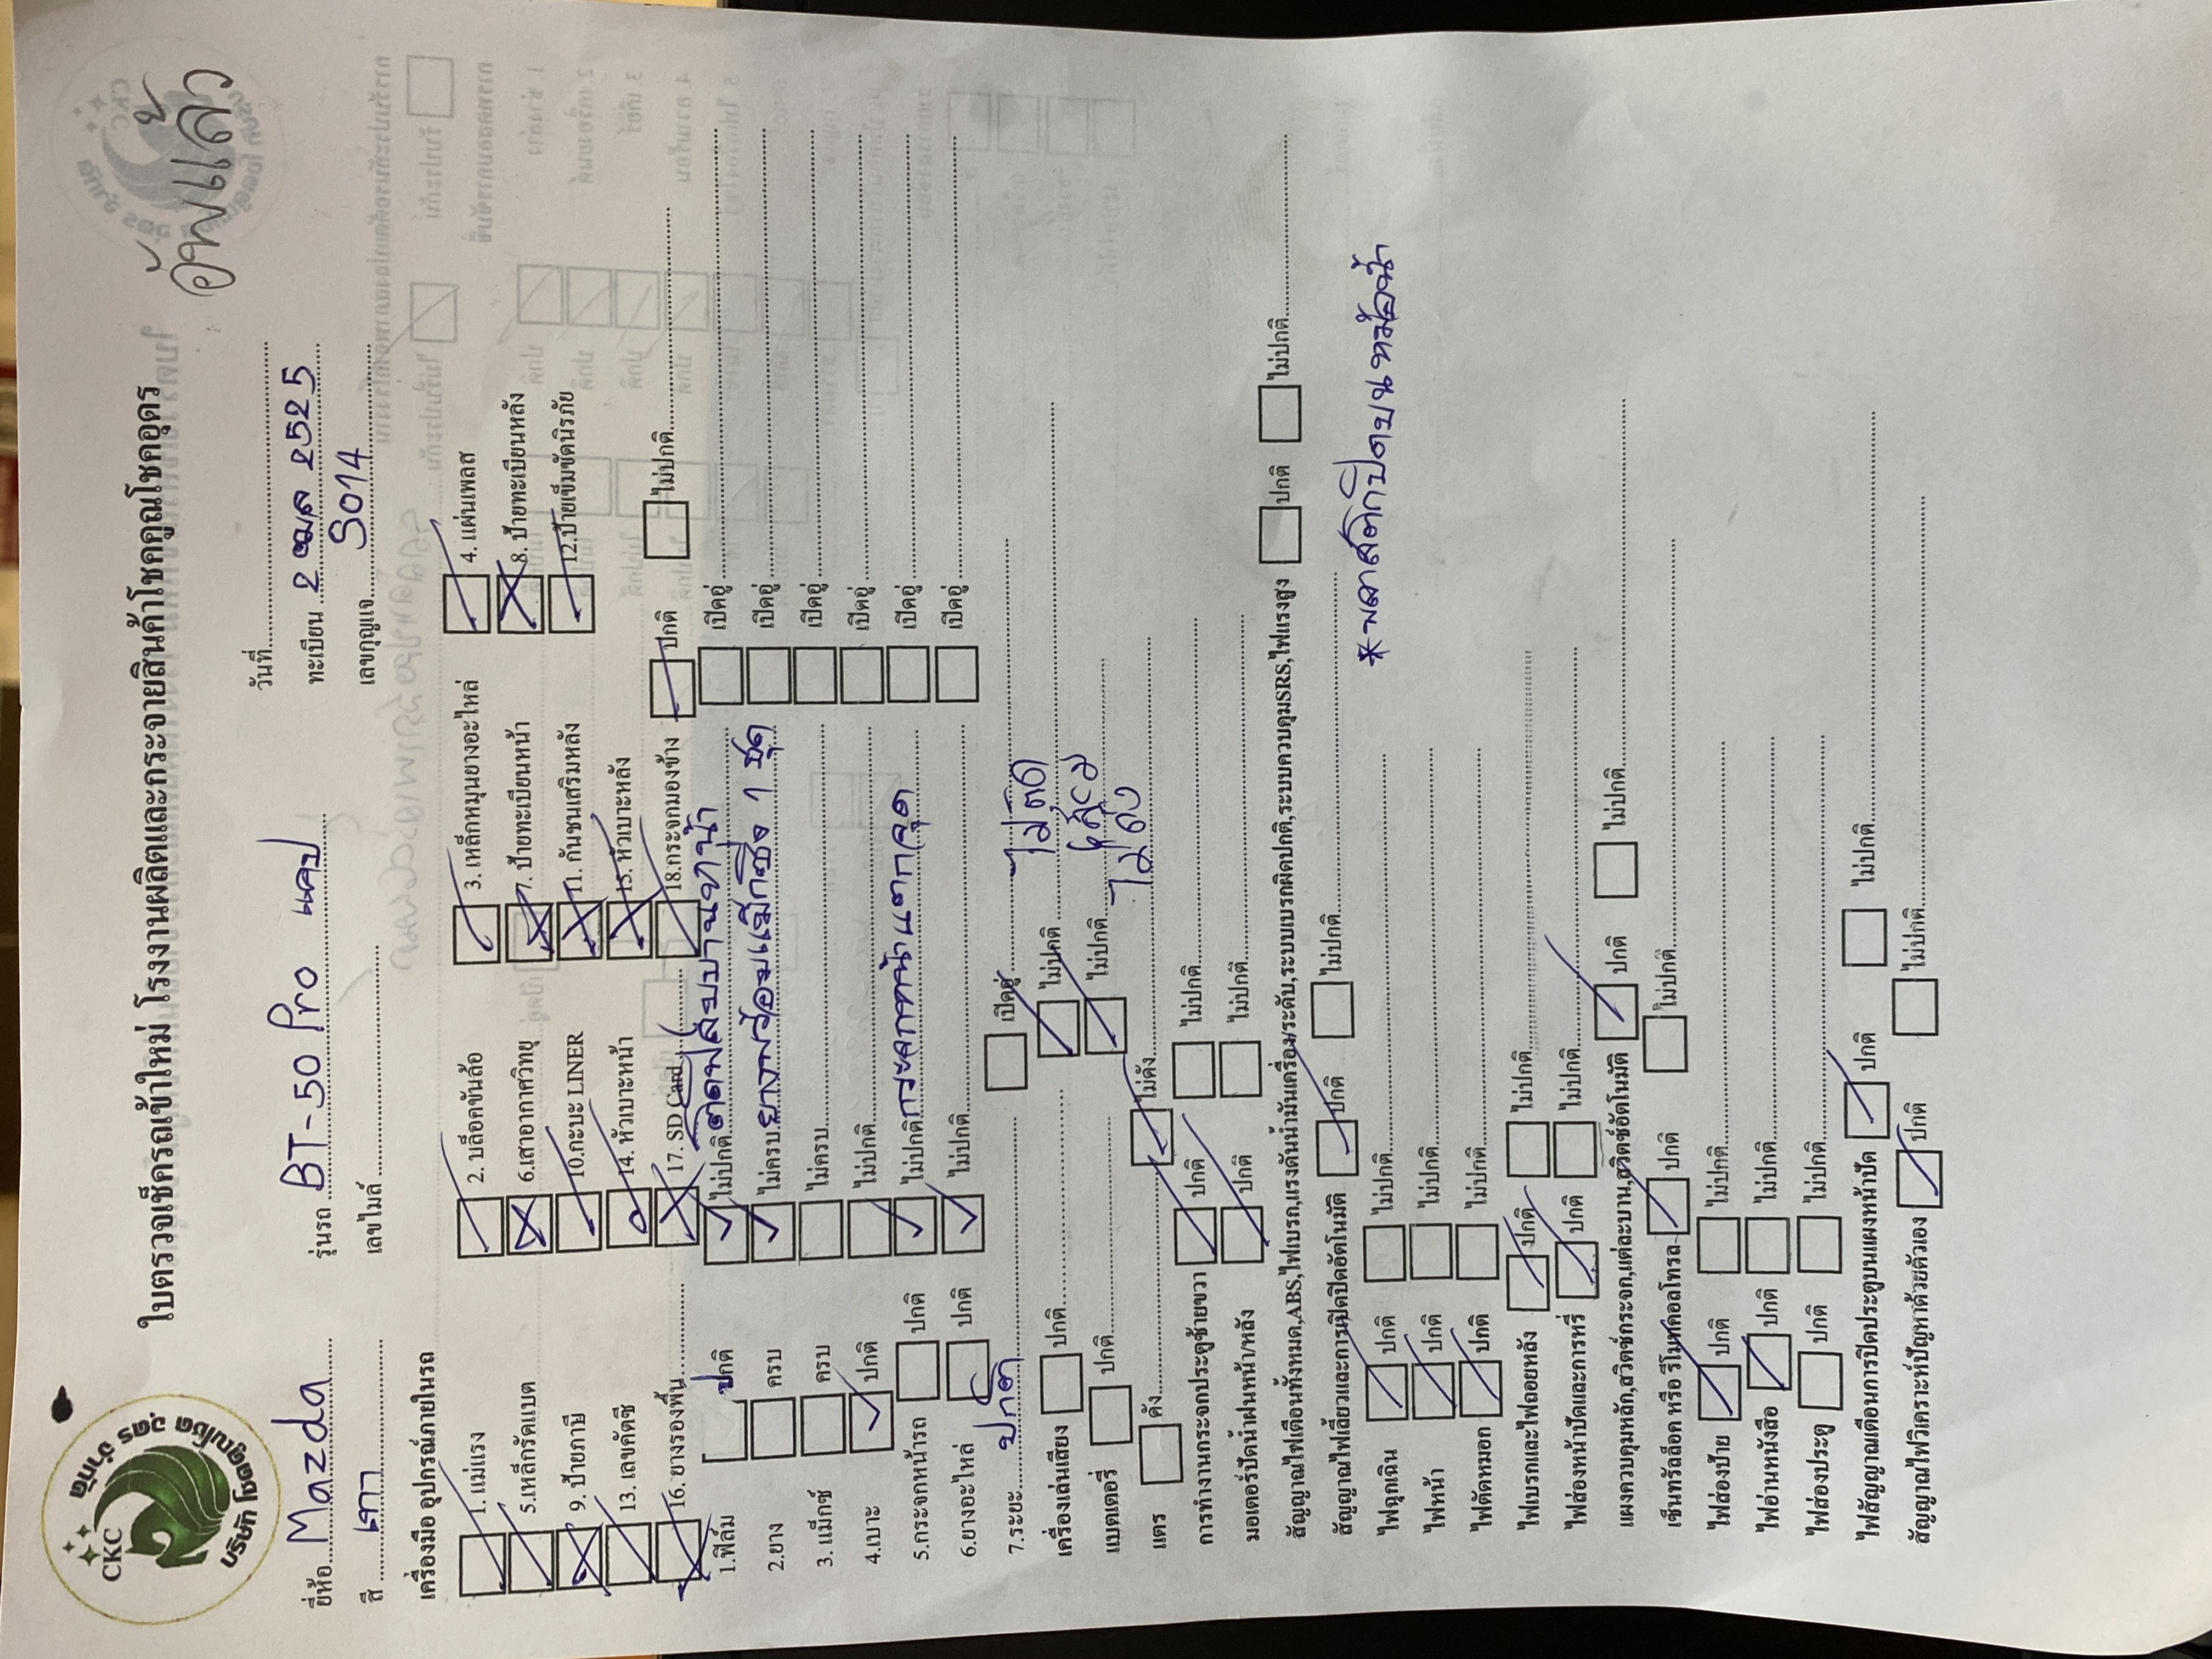 CKC
บริษัท โชคคูณโชค อุดร จำกัด
อัพแล้ว
ใบตรวจเช็ครถเข้าใหม่ โรงงานผลิตและกระจายสินค้าโชคคูณโชคอุดร
วันที่
ยี่ห้อ Mazda รุ่นรถ BT-50 Pro แคป ทะเบียน 2 ฒล 2525
สี เทา เลขไมล์ เลขกุญแจ S014
เครื่องมือ อุปกรณ์ภายในรถ
1. แม่แรง 2. บล็อคขันล้อ 3. เหล็กหมุนยางอะไหล่ 4. แผ่นเพลส
5.เหล็กรัดแบต 6.เสาอากาศวิทยุ 7. ป้ายทะเบียนหน้า 8. ป้ายทะเบียนหลัง
9. ป้ายภาษี 10.กะบะ LINER 11. กันชนเสริมหลัง 12.ป้ายเข็มขัดนิรภัย
13. เลขคัดซี 14. หัวเบาะหน้า 15. หัวเบาะหลัง
16. ยางรองพื้น 17. SD Card 18.กระจกมองข้าง ปกติ ไม่ปกติ
1.ฟิล์ม ปกติ ไม่ปกติ ติดฟิล์มบานหน้า เปิดอยู่
2.ยาง ครบ ไม่ครบ ยางพร้อมแม็กซิ่ง 1 ชุด เปิดอยู่
3. แม็กซ์ ครบ ไม่ครบ เปิดอยู่
4.เบาะ ปกติ ไม่ปกติ เปิดอยู่
5.กระจกหน้ารถ ปกติ ไม่ปกติ กระจกหน้าแตกจุด เปิดอยู่
6.ยางอะไหล่ ปกติ ไม่ปกติ เปิดอยู่
7.ระยะ ปกติ เปิดอยู่
เครื่องเล่นเสียง ปกติ ไม่ปกติ ไม่ติด
แบตเตอรี่ ปกติ ไม่ปกติ เสื่อม
แตร ดัง ไม่ดัง ไม่ดัง
การทำงานกระจกประตูซ้ายขวา ปกติ ไม่ปกติ
มอเตอร์ปัดน้ำฝนหน้า/หลัง ปกติ ไม่ปกติ
สัญญาณไฟเตือนทั้งหมด,ABS,ไฟเบรก,แรงดันน้ำมันเครื่อง/ระดับ,ระบบเบรกผิดปกติ,ระบบควบคุมSRS,ไฟแรงสูง ปกติ ไม่ปกติ
สัญญาณไฟเลี้ยวและการเปิดปิดอัตโนมัติ ปกติ ไม่ปกติ
ไฟฉุกเฉิน ปกติ ไม่ปกติ *พลาสติกปิดบนหม้อน้ำ
ไฟหน้า ปกติ ไม่ปกติ
ไฟตัดหมอก ปกติ ไม่ปกติ
ไฟเบรกและไฟถอยหลัง ปกติ ไม่ปกติ
ไฟส่องหน้าปัดและการหรี่ ปกติ ไม่ปกติ
แผงควบคุมหลัก,สวิตช์กระจก,แต่ละบาน,สวิตซ์อัตโนมัติ ปกติ ไม่ปกติ
เซ็นทรัลล็อค หรือ รีโมทคอลโทรล ปกติ ไม่ปกติ
ไฟส่องป้าย ปกติ ไม่ปกติ
ไฟอ่านหนังสือ ปกติ ไม่ปกติ
ไฟส่องประตู ปกติ ไม่ปกติ
ไฟสัญญาณเตือนการปิดประตูบนแผงหน้าปัด ปกติ ไม่ปกติ
สัญญาณไฟวิเคราะห์ปัญหาด้วยตัวเอง ปกติ ไม่ปกติ